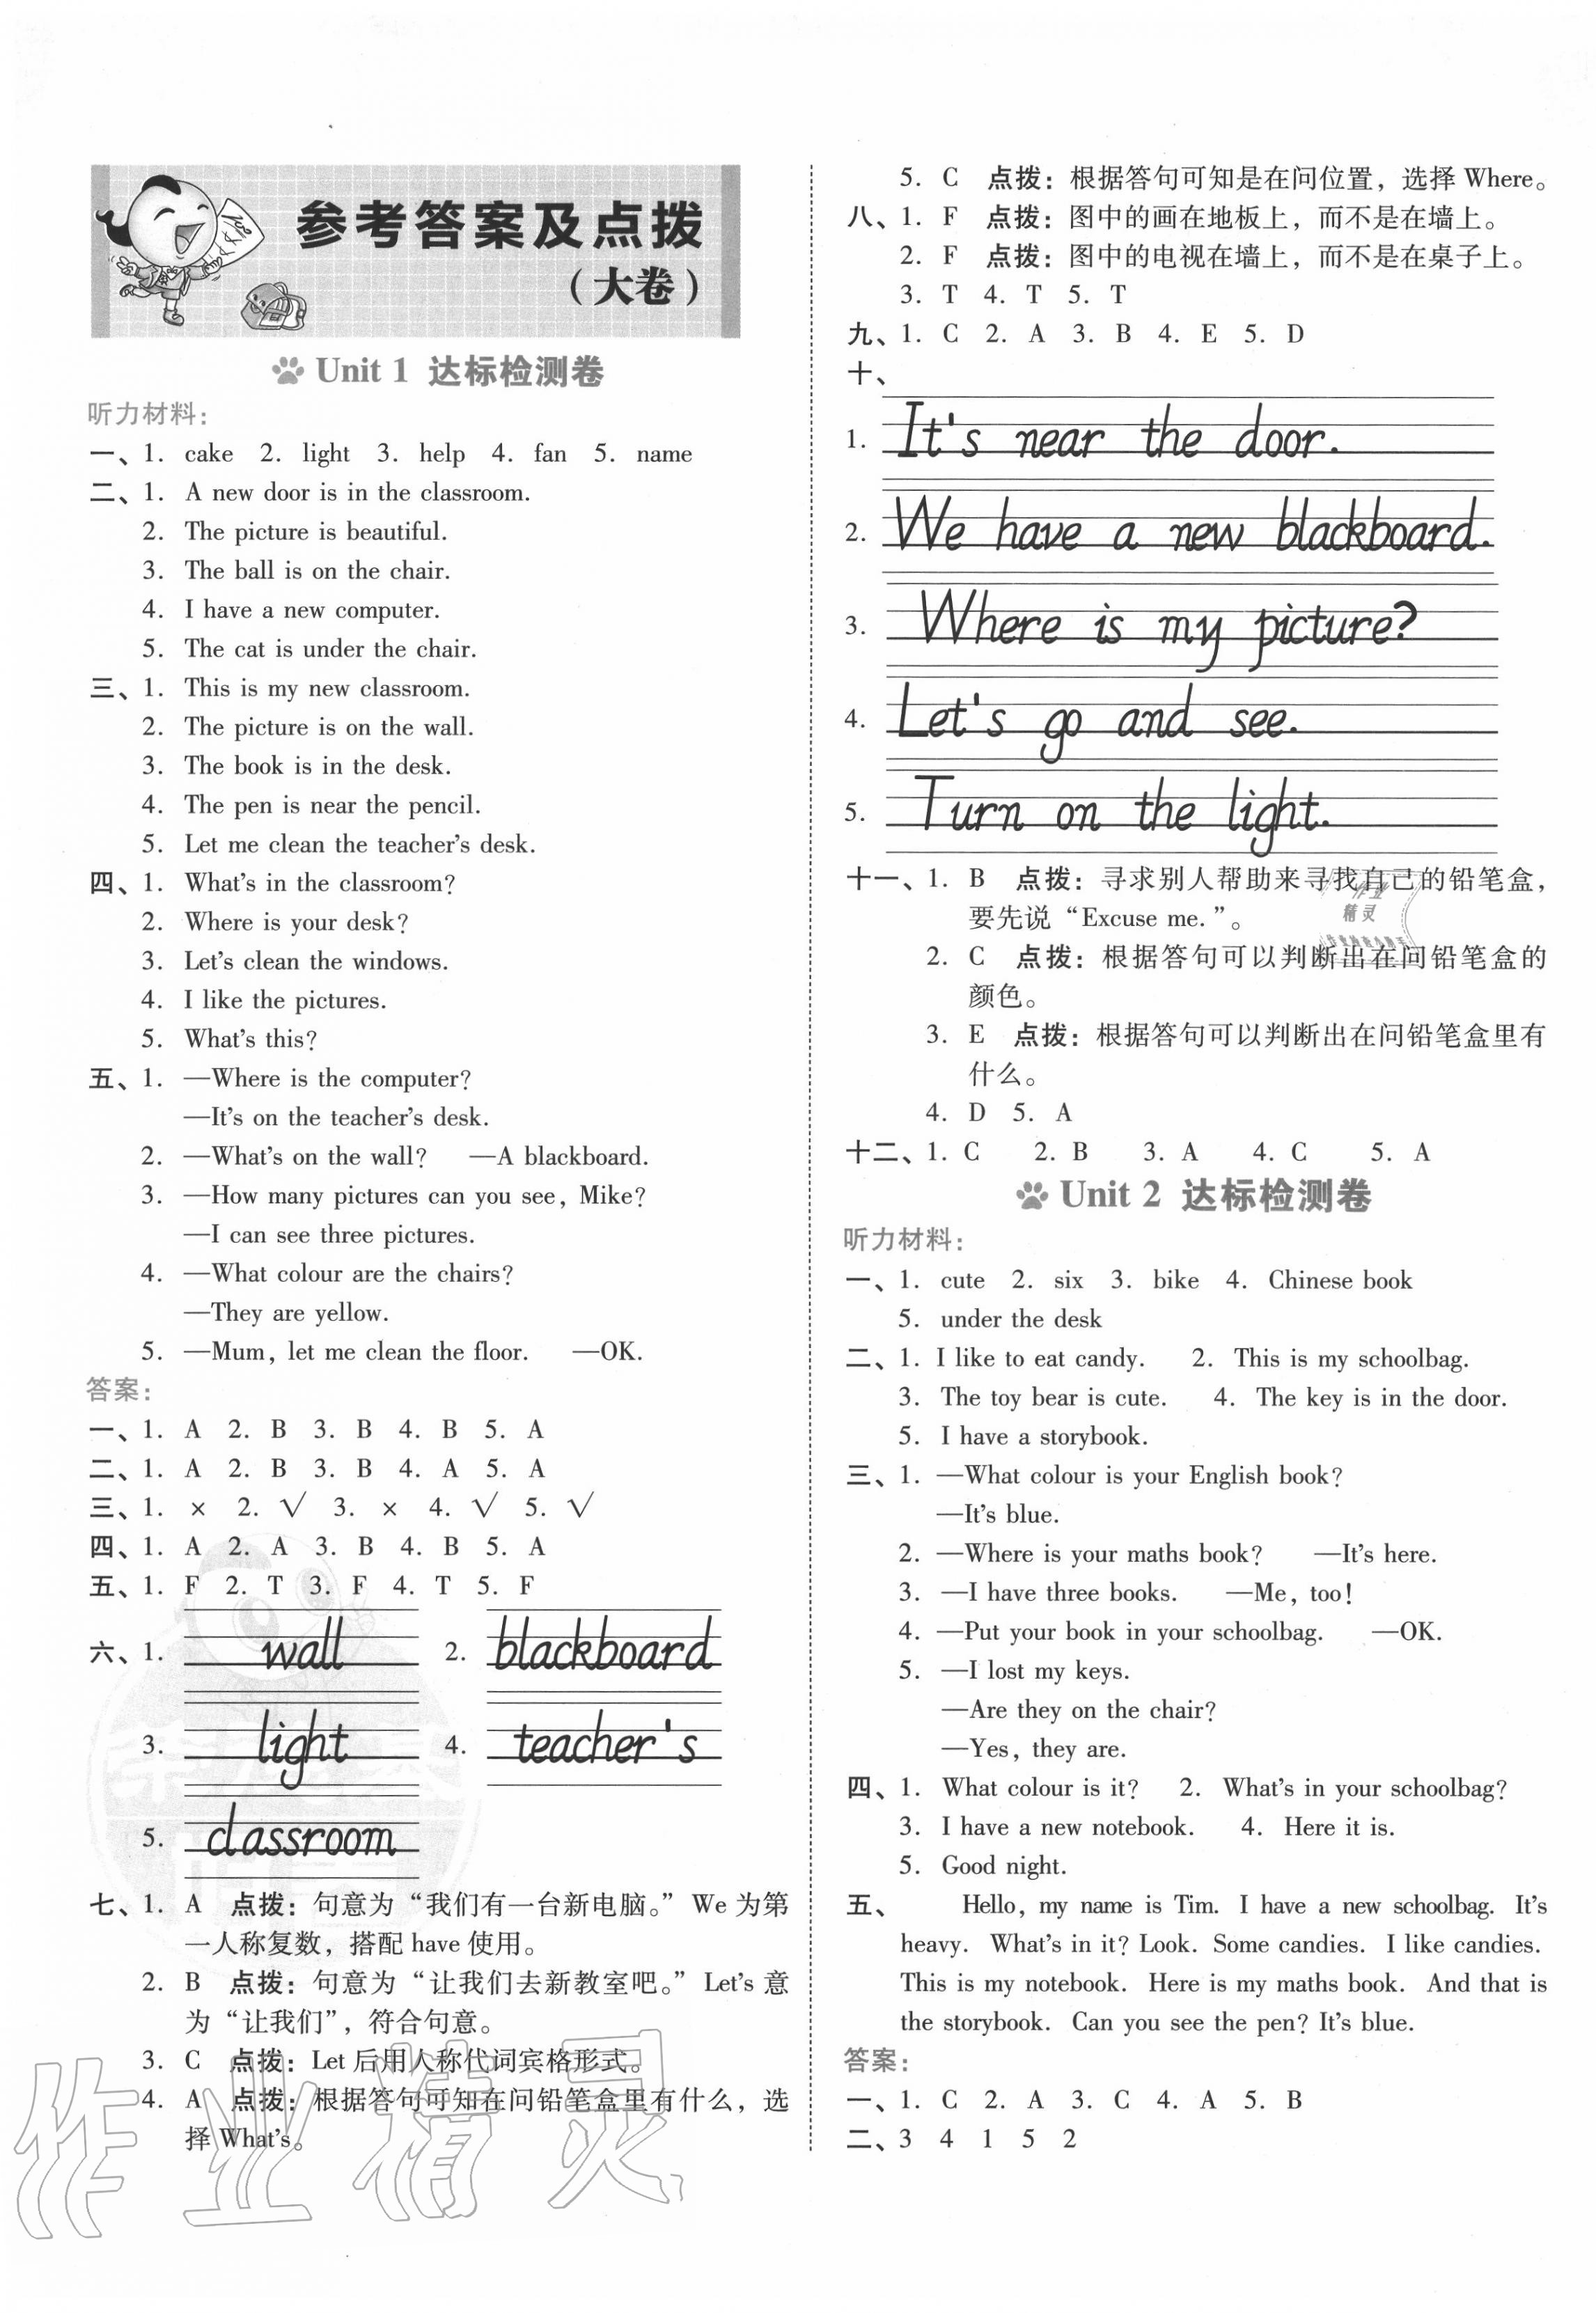 参考答案及点拨
(大卷)
Unit 1 达标检测卷
听力材料:
一、1. cake 2. light 3. help 4. fan 5. name
二、1. A new door is in the classroom.
2. The picture is beautiful.
3. The ball is on the chair.
4. I have a new computer.
5. The cat is under the chair.
三、1. This is my new classroom.
2. The picture is on the wall.
3. The book is in the desk.
4. The pen is near the pencil.
5. Let me clean the teacher's desk.
四、1. What's in the classroom?
2. Where is your desk?
3. Let's clean the windows.
4. I like the pictures.
5. What's this?
五、1. —Where is the computer?
—It's on the teacher's desk.
2. —What's on the wall? —A blackboard.
3. —How many pictures can you see, Mike?
—I can see three pictures.
4. —What colour are the chairs?
—They are yellow.
5. —Mum, let me clean the floor. —OK.
答案:
一、1. A 2. B 3. B 4. B 5. A
二、1. A 2. B 3. B 4. A 5. A
三、1. × 2. √ 3. × 4. √ 5. √
四、1. A 2. A 3. B 4. B 5. A
五、1. F 2. T 3. F 4. T 5. F
六、1. wall 2. blackboard
3. light 4. teacher's
5. classroom
七、1. A 点拨:句意为“我们有一台新电脑。” We 为第
一人称复数,搭配 have 使用。
2. B 点拨:句意为“让我们去新教室吧。” Let's 意
为“让我们”,符合句意。
3. C 点拨:Let 后用人称代词宾格形式。
4. A 点拨:根据答句可知在问铅笔盒里有什么,选
择 What's。
5. C 点拨:根据答句可知是在问位置,选择 Where。
八、1. F 点拨:图中的画在地板上,而不是在墙上。
2. F 点拨:图中的电视在墙上,而不是在桌子上。
3. T 4. T 5. T
九、1. C 2. A 3. B 4. E 5. D
十、
1. It's near the door.
2. We have a new blackboard.
3. Where is my picture?
4. Let's go and see.
5. Turn on the light.
十一、1. B 点拨:寻求别人帮助来寻找自己的铅笔盒,
要先说“Excuse me.”。
2. C 点拨:根据答句可以判断出在问铅笔盒的
颜色。
3. E 点拨:根据答句可以判断出在问铅笔盒里有
什么。
4. D 5. A
十二、1. C 2. B 3. A 4. C 5. A
Unit 2 达标检测卷
听力材料:
一、1. cute 2. six 3. bike 4. Chinese book
5. under the desk
二、1. I like to eat candy. 2. This is my schoolbag.
3. The toy bear is cute. 4. The key is in the door.
5. I have a storybook.
三、1. —What colour is your English book?
—It's blue.
2. —Where is your maths book? —It's here.
3. —I have three books. —Me, too!
4. —Put your book in your schoolbag. —OK.
5. —I lost my keys.
—Are they on the chair?
—Yes, they are.
四、1. What colour is it? 2. What's in your schoolbag?
3. I have a new notebook. 4. Here it is.
5. Good night.
五、 Hello, my name is Tim. I have a new schoolbag. It's
heavy. What's in it? Look. Some candies. I like candies.
This is my notebook. Here is my maths book. And that is
the storybook. Can you see the pen? It's blue.
答案:
一、1. C 2. A 3. C 4. A 5. B
二、3 4 1 5 2
作业精灵
作业
精灵